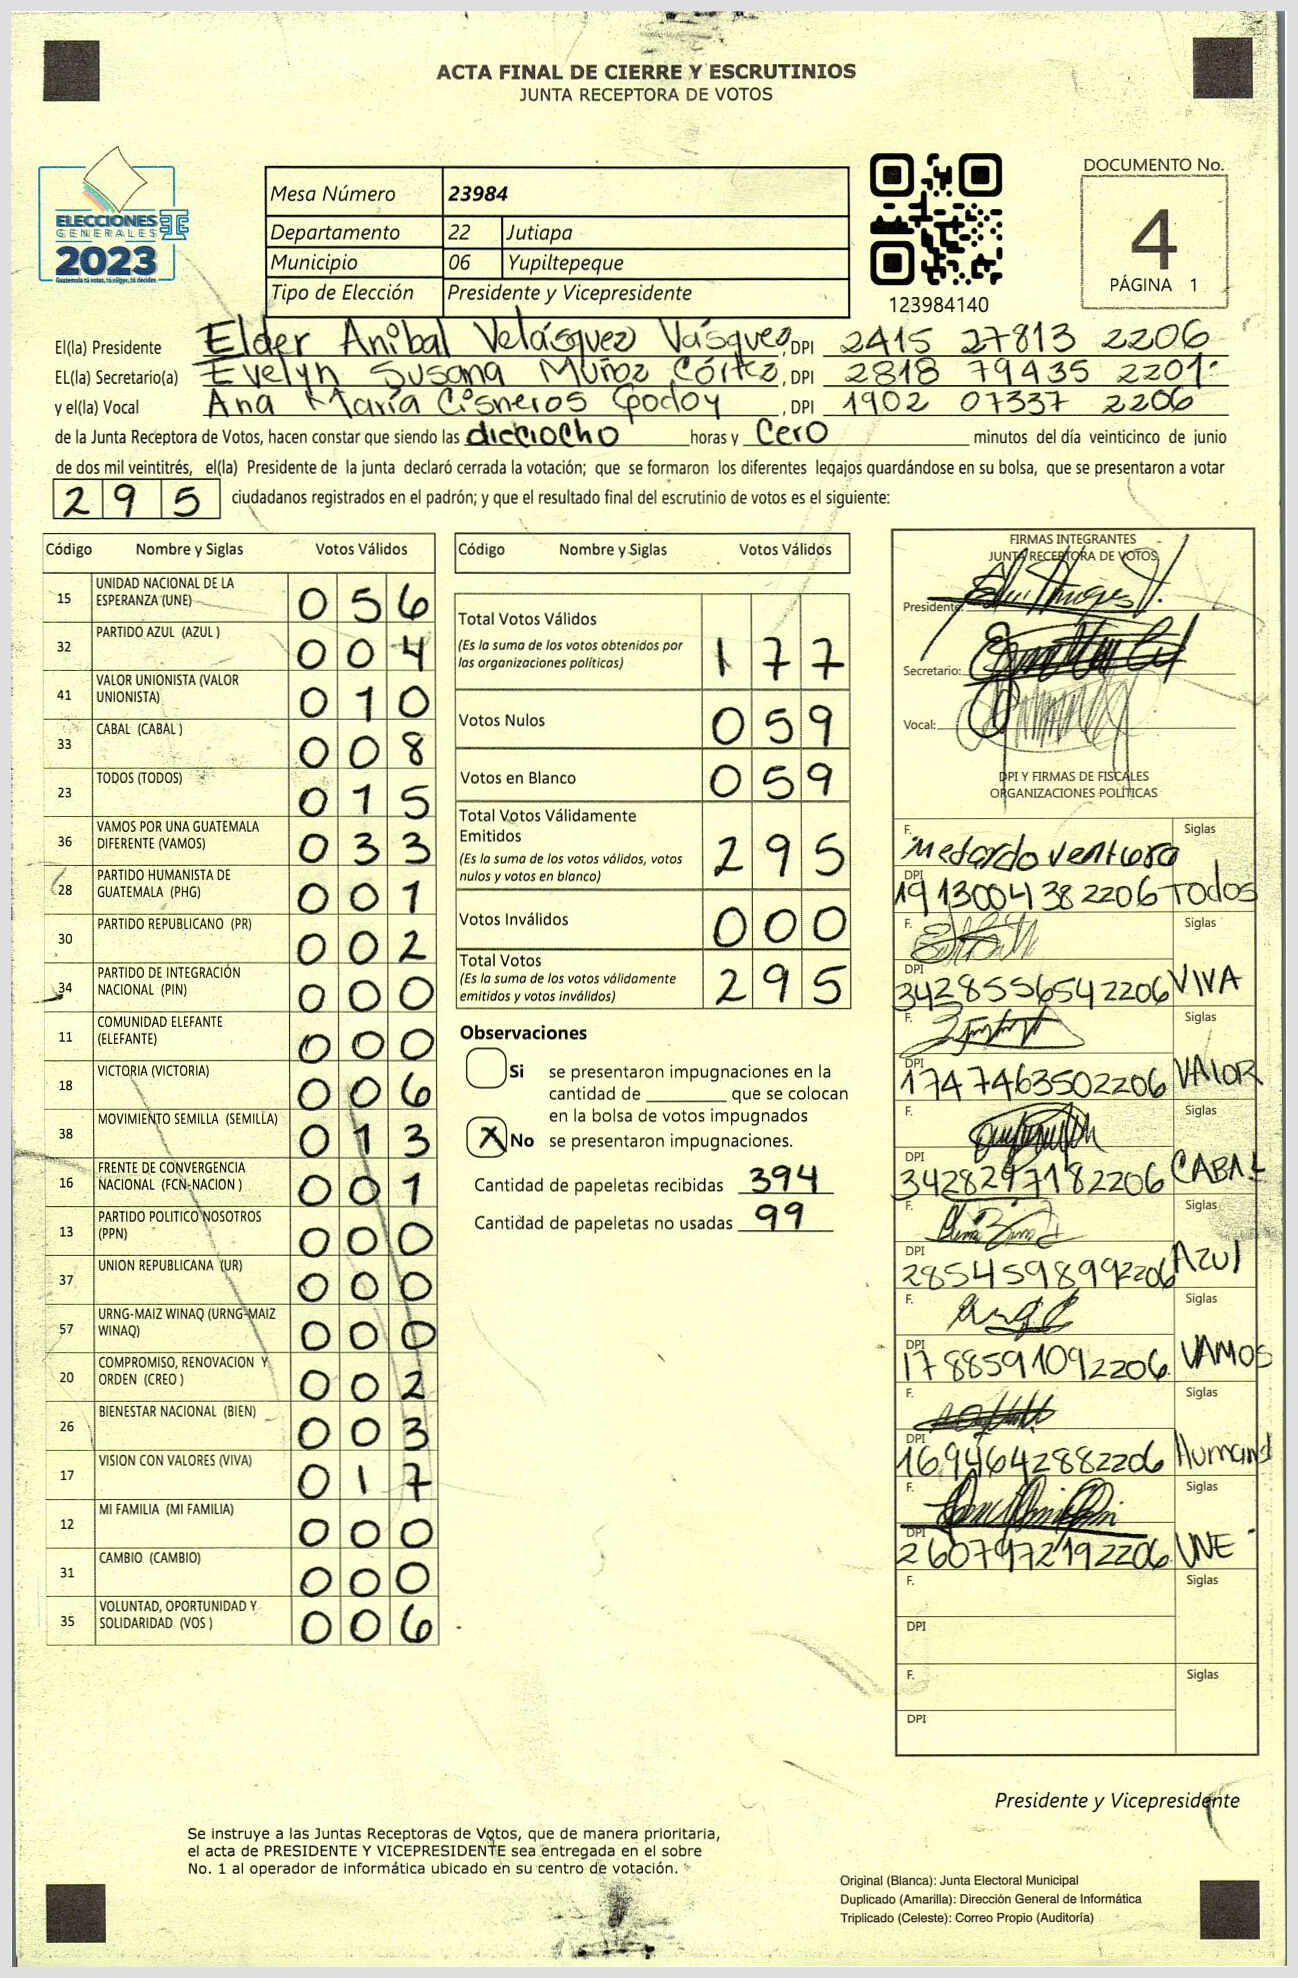 ACTA FINAL DE CIERRE Y ESCRUTINIOS
JUNTA RECEPTORA DE VOTOS
ELECCIONES
GENERALES
2023
Guatemala tú votas, tú eliges, tú decides
Mesa Número 23984
Departamento 22 Jutiapa
Municipio 06 Yupiltepeque
Tipo de Elección Presidente y Vicepresidente
123984140
DOCUMENTO No.
4
PÁGINA 1
El(la) Presidente Elder Anibal Velásquez Vásquez, DPI 2415 27813 2206
EL(la) Secretario(a) Evelyn Susana Muñoz Córtez, DPI 2818 79435 2201
y el(la) Vocal Ana María Cisneros Godoy, DPI 1902 07337 2206
de la Junta Receptora de Votos, hacen constar que siendo las dieciocho horas y cero minutos del día veinticinco de junio
de dos mil veintitrés, el(la) Presidente de la junta declaró cerrada la votación; que se formaron los diferentes legajos guardándose en su bolsa, que se presentaron a votar
295 ciudadanos registrados en el padrón; y que el resultado final del escrutinio de votos es el siguiente:
Código Nombre y Siglas Votos Válidos
15 UNIDAD NACIONAL DE LA ESPERANZA (UNE) 056
32 PARTIDO AZUL (AZUL ) 004
41 VALOR UNIONISTA (VALOR UNIONISTA) 010
33 CABAL (CABAL ) 008
23 TODOS (TODOS) 015
36 VAMOS POR UNA GUATEMALA DIFERENTE (VAMOS) 033
28 PARTIDO HUMANISTA DE GUATEMALA (PHG) 001
30 PARTIDO REPUBLICANO (PR) 002
34 PARTIDO DE INTEGRACIÓN NACIONAL (PIN) 000
11 COMUNIDAD ELEFANTE (ELEFANTE) 000
18 VICTORIA (VICTORIA) 006
38 MOVIMIENTO SEMILLA (SEMILLA) 013
16 FRENTE DE CONVERGENCIA NACIONAL (FCN-NACION ) 001
13 PARTIDO POLITICO NOSOTROS (PPN) 000
37 UNION REPUBLICANA (UR) 000
57 URNG-MAIZ WINAQ (URNG-MAIZ WINAQ) 000
20 COMPROMISO, RENOVACION Y ORDEN (CREO ) 002
26 BIENESTAR NACIONAL (BIEN) 003
17 VISION CON VALORES (VIVA) 017
12 MI FAMILIA (MI FAMILIA) 000
31 CAMBIO (CAMBIO) 000
35 VOLUNTAD, OPORTUNIDAD Y SOLIDARIDAD (VOS ) 006
Código Nombre y Siglas Votos Válidos
Total Votos Válidos
(Es la suma de los votos obtenidos por las organizaciones políticas) 177
Votos Nulos 059
Votos en Blanco 059
Total Votos Válidamente Emitidos
(Es la suma de los votos válidos, votos nulos y votos en blanco) 295
Votos Inválidos 000
Total Votos
(Es la suma de los votos válidamente emitidos y votos inválidos) 295
Observaciones
Si se presentaron impugnaciones en la
cantidad de ________ que se colocan
en la bolsa de votos impugnados
X No se presentaron impugnaciones.
Cantidad de papeletas recibidas 394
Cantidad de papeletas no usadas 99
FIRMAS INTEGRANTES
JUNTA RECEPTORA DE VOTOS
Presidente:
Secretario:
Vocal:
DPI Y FIRMAS DE FISCALES
ORGANIZACIONES POLÍTICAS
F. Medardo Ventura Siglas
DPI 1913004382206 TODOS
F. Siglas
DPI 3428556542206 VIVA
F. Siglas
DPI 1747463502206 VALOR
F. Siglas
DPI 3428297182206 CABAL
F. Siglas
DPI 2854598992206 AZUl
F. Siglas
DPI 1788591092206 VAMOS
F. Siglas
DPI 1694642882206
F. Siglas
DPI 2607972192206 UNE
F. Siglas
DPI
F. Siglas
DPI
Presidente y Vicepresidente
Se instruye a las Juntas Receptoras de Votos, que de manera prioritaria,
el acta de PRESIDENTE Y VICEPRESIDENTE sea entregada en el sobre
No. 1 al operador de informática ubicado en su centro de votación.
Original (Blanca): Junta Electoral Municipal
Duplicado (Amarilla): Dirección General de Informática
Triplicado (Celeste): Correo Propio (Auditoría)